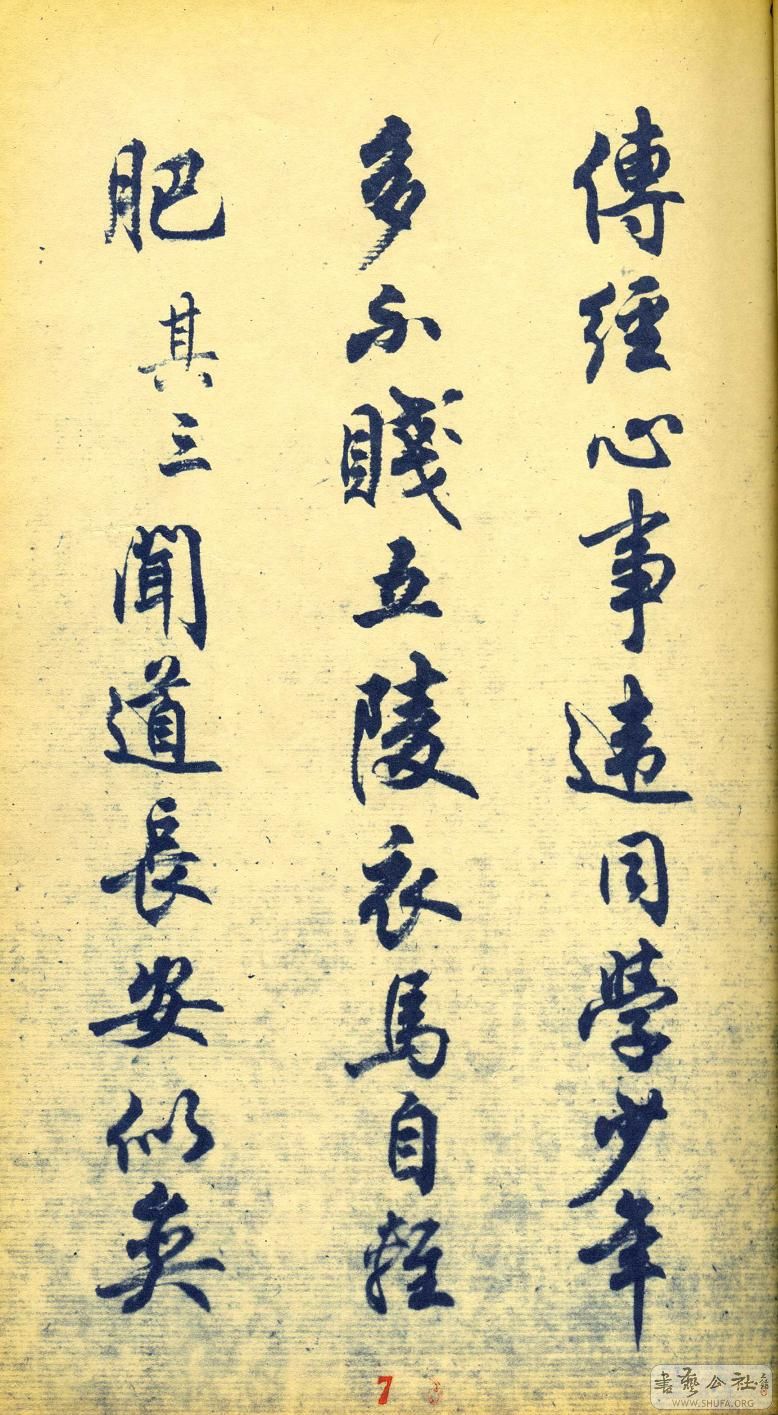 傳經心事違同學少年
多不賤五陵衣馬自輕
肥 其三 聞道長安似奕
7
書藝公社
WWW.SHUFA.ORG